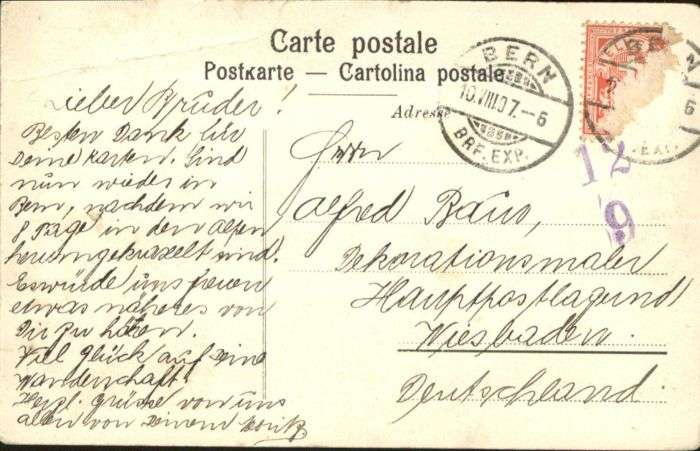 Carte postale
Postkarte — Cartolina postale
Adresse
BERN
10.VIII.07.–6
BRF. EXP.
12
9
Lieber Bruder!
Besten Dank für
Deine Karten. Sind
nun wieder in
Bern, nachdem wir
8 Tage in den Alpen
herumgekraxelt sind.
Es würde uns freuen
etwas näheres von
Dir zu hören.
Viel Glück auf Deine
Wanderschaft!
Herzl. Grüsse von uns
allen von Deinem
Herrn
Alfred Baur,
Dekorationsmaler
Hauptpostlagernd
Wiesbaden.
Deutschland.